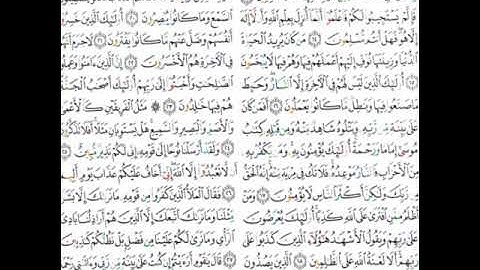 فَإِلَّمْ يَسْتَجِيبُوا۟ لَكُمْ فَٱعْلَمُوٓا۟ أَنَّمَآ أُنزِلَ بِعِلْمِ ٱللَّهِ وَأَن لَّآ إِلَٰهَ
إِلَّا هُوَ فَهَلْ أَنتُم مُّسْلِمُونَ ١٤ مَن كَانَ يُرِيدُ ٱلْحَيَوٰةَ
ٱلدُّنْيَا وَزِينَتَهَا نُوَفِّ إِلَيْهِمْ أَعْمَٰلَهُمْ فِيهَا وَهُمْ فِيهَا لَا يُبْخَسُونَ
١٥ أُو۟لَٰٓئِكَ ٱلَّذِينَ لَيْسَ لَهُمْ فِى ٱلْءَاخِرَةِ إِلَّا ٱلنَّارُ وَحَبِطَ
مَا صَنَعُوا۟ فِيهَا وَبَٰطِلٌ مَّا كَانُوا۟ يَعْمَلُونَ ١٦ أَفَمَن كَانَ
عَلَىٰ بَيِّنَةٍ مِّن رَّبِّهِۦ وَيَتْلُوهُ شَاهِدٌ مِّنْهُ وَمِن قَبْلِهِۦ كِتَٰبُ
مُوسَىٰٓ إِمَامًا وَرَحْمَةً أُو۟لَٰٓئِكَ يُؤْمِنُونَ بِهِۦ وَمَن يَكْفُرْ بِهِۦ
مِنَ ٱلْأَحْزَابِ فَٱلنَّارُ مَوْعِدُهُۥ فَلَا تَكُ فِى مِرْيَةٍ مِّنْهُ إِنَّهُ ٱلْحَقُّ
مِن رَّبِّكَ وَلَٰكِنَّ أَكْثَرَ ٱلنَّاسِ لَا يُؤْمِنُونَ ١٧ وَمَنْ
أَظْلَمُ مِمَّنِ ٱفْتَرَىٰ عَلَى ٱللَّهِ كَذِبًا أُو۟لَٰٓئِكَ يُعْرَضُونَ
عَلَىٰ رَبِّهِمْ وَيَقُولُ ٱلْأَشْهَٰدُ هَٰٓؤُلَآءِ ٱلَّذِينَ كَذَبُوا۟ عَلَىٰ
رَبِّهِمْ أَلَا لَعْنَةُ ٱللَّهِ عَلَى ٱلظَّٰلِمِينَ ١٨ ٱلَّذِينَ يَصُدُّونَ
ٱلسَّمْعَ وَمَا كَانُوا۟ يُبْصِرُونَ ٢٠ أُو۟لَٰٓئِكَ ٱلَّذِينَ خَسِرُوٓا۟
أَنفُسَهُمْ وَضَلَّ عَنْهُم مَّا كَانُوا۟ يَفْتَرُونَ ٢١ لَا جَرَمَ أَنَّهُمْ
فِى ٱلْءَاخِرَةِ هُمُ ٱلْأَخْسَرُونَ ٢٢ إِنَّ ٱلَّذِينَ ءَامَنُوا۟ وَعَمِلُوا۟
ٱلصَّٰلِحَٰتِ وَأَخْبَتُوٓا۟ إِلَىٰ رَبِّهِمْ أُو۟لَٰٓئِكَ أَصْحَٰبُ ٱلْجَنَّةِ
هُمْ فِيهَا خَٰلِدُونَ ٢٣ ۞ مَثَلُ ٱلْفَرِيقَيْنِ كَٱلْأَعْمَىٰ
وَٱلْأَصَمِّ وَٱلْبَصِيرِ وَٱلسَّمِيعِ هَلْ يَسْتَوِيَانِ مَثَلًا أَفَلَا تَذَكَّرُونَ
٢٤ وَلَقَدْ أَرْسَلْنَا نُوحًا إِلَىٰ قَوْمِهِۦٓ إِنِّى لَكُمْ نَذِيرٌ مُّبِينٌ
٢٥ أَن لَّا تَعْبُدُوٓا۟ إِلَّا ٱللَّهَ إِنِّىٓ أَخَافُ عَلَيْكُمْ عَذَابَ يَوْمٍ أَلِيمٍ
٢٦ فَقَالَ ٱلْمَلَأُ ٱلَّذِينَ كَفَرُوا۟ مِن قَوْمِهِۦ مَا نَرَىٰكَ إِلَّا بَشَرًا
مِّثْلَنَا وَمَا نَرَىٰكَ ٱتَّبَعَكَ إِلَّا ٱلَّذِينَ هُمْ أَرَاذِلُنَا بَادِىَ
ٱلرَّأْىِ وَمَا نَرَىٰ لَكُمْ عَلَيْنَا مِن فَضْلٍۭ بَلْ نَظُنُّكُمْ كَٰذِبِينَ
٢٧ قَالَ يَٰقَوْمِ أَرَءَيْتُمْ إِن كُنتُ عَلَىٰ بَيِّنَةٍ مِّن رَّبِّى وَءَاتَىٰنِى رَحْمَةً